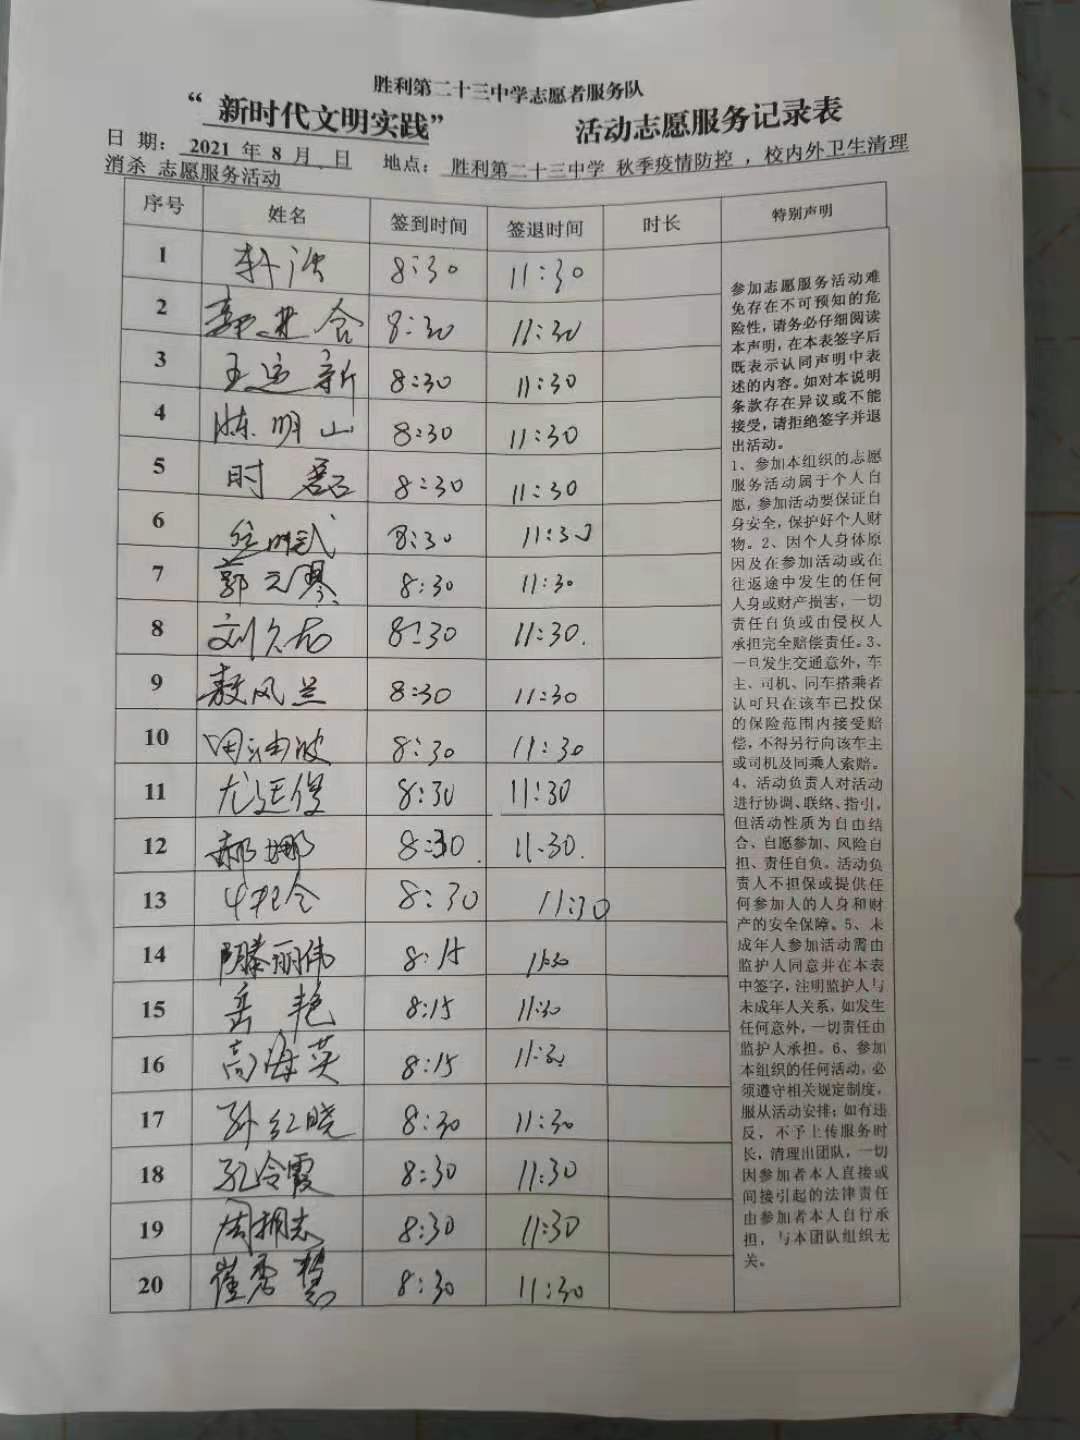 胜利第二十三中学志愿者服务队
“ 新时代文明实践” 活动志愿服务记录表
日 期： 2021 年 8 月 、 日 地点： 胜利第二十三中学 秋季疫情防控 ，校内外卫生清理
消杀 志愿服务活动
序号 姓名 签到时间 签退时间 时长 特别声明
1 8:30 11:30
2 8:30 11:30
3 王运新 8:30 11:30
4 陈明山 8:30 11:30
5 时磊 8:30 11:30
6 8:30 11:30
7 郭元琴 8:30 11:30
8 8:30 11:30.
9 8:30 11:30
10 8:30 11:30
11 尤延俊 8:30 11:30
12 郝娜 8:30. 11:30.
13 8:30 11:30
14 滕丽伟 8:15 11:30
15 岳艳 8:15 11:30
16 高海英 8:15 11:30
17 孙红晓 8:30 11:30
18 孔令霞 8:30 11:30
19 8:30 11:30
20 崔秀慧 8:30 11:30
参加志愿服务活动难
免存在不可预知的危
险性，请务必仔细阅读
本声明，在本表签字后
既表示认同声明中表
述的内容。如对本说明
条款存在异议或不能
接受，请拒绝签字并退
出活动。
1、参加本组织的志愿
服务活动属于个人自
愿，参加活动要保证自
身安全，保护好个人财
物。2、因个人身体原
因及在参加活动或在
往返途中发生的任何
人身或财产损害，一切
责任自负或由侵权人
承担完全赔偿责任。3、
一旦发生交通意外，车
主、司机、同车搭乘者
认可只在该车已投保
的保险范围内接受赔
偿，不得另行向该车主
或司机及同乘人索赔。
4、活动负责人对活动
进行协调、联络、指引，
但活动性质为自由结
合、自愿参加、风险自
担、责任自负。活动负
责人不担保或提供任
何参加人的人身和财
产的安全保障。5、未
成年人参加活动需由
监护人同意并在本表
中签字，注明监护人与
未成年人关系，如发生
任何意外，一切责任由
监护人承担。6、参加
本组织的任何活动，必
须遵守相关规定制度，
服从活动安排；如有违
反，不予上传服务时
长，清理出团队，一切
因参加者本人直接或
间接引起的法律责任
由参加者本人自行承
担，与本团队组织无
关。